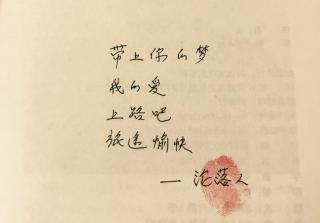 带上你的梦
我的爱
上路吧
旅途愉快
— 沦落人